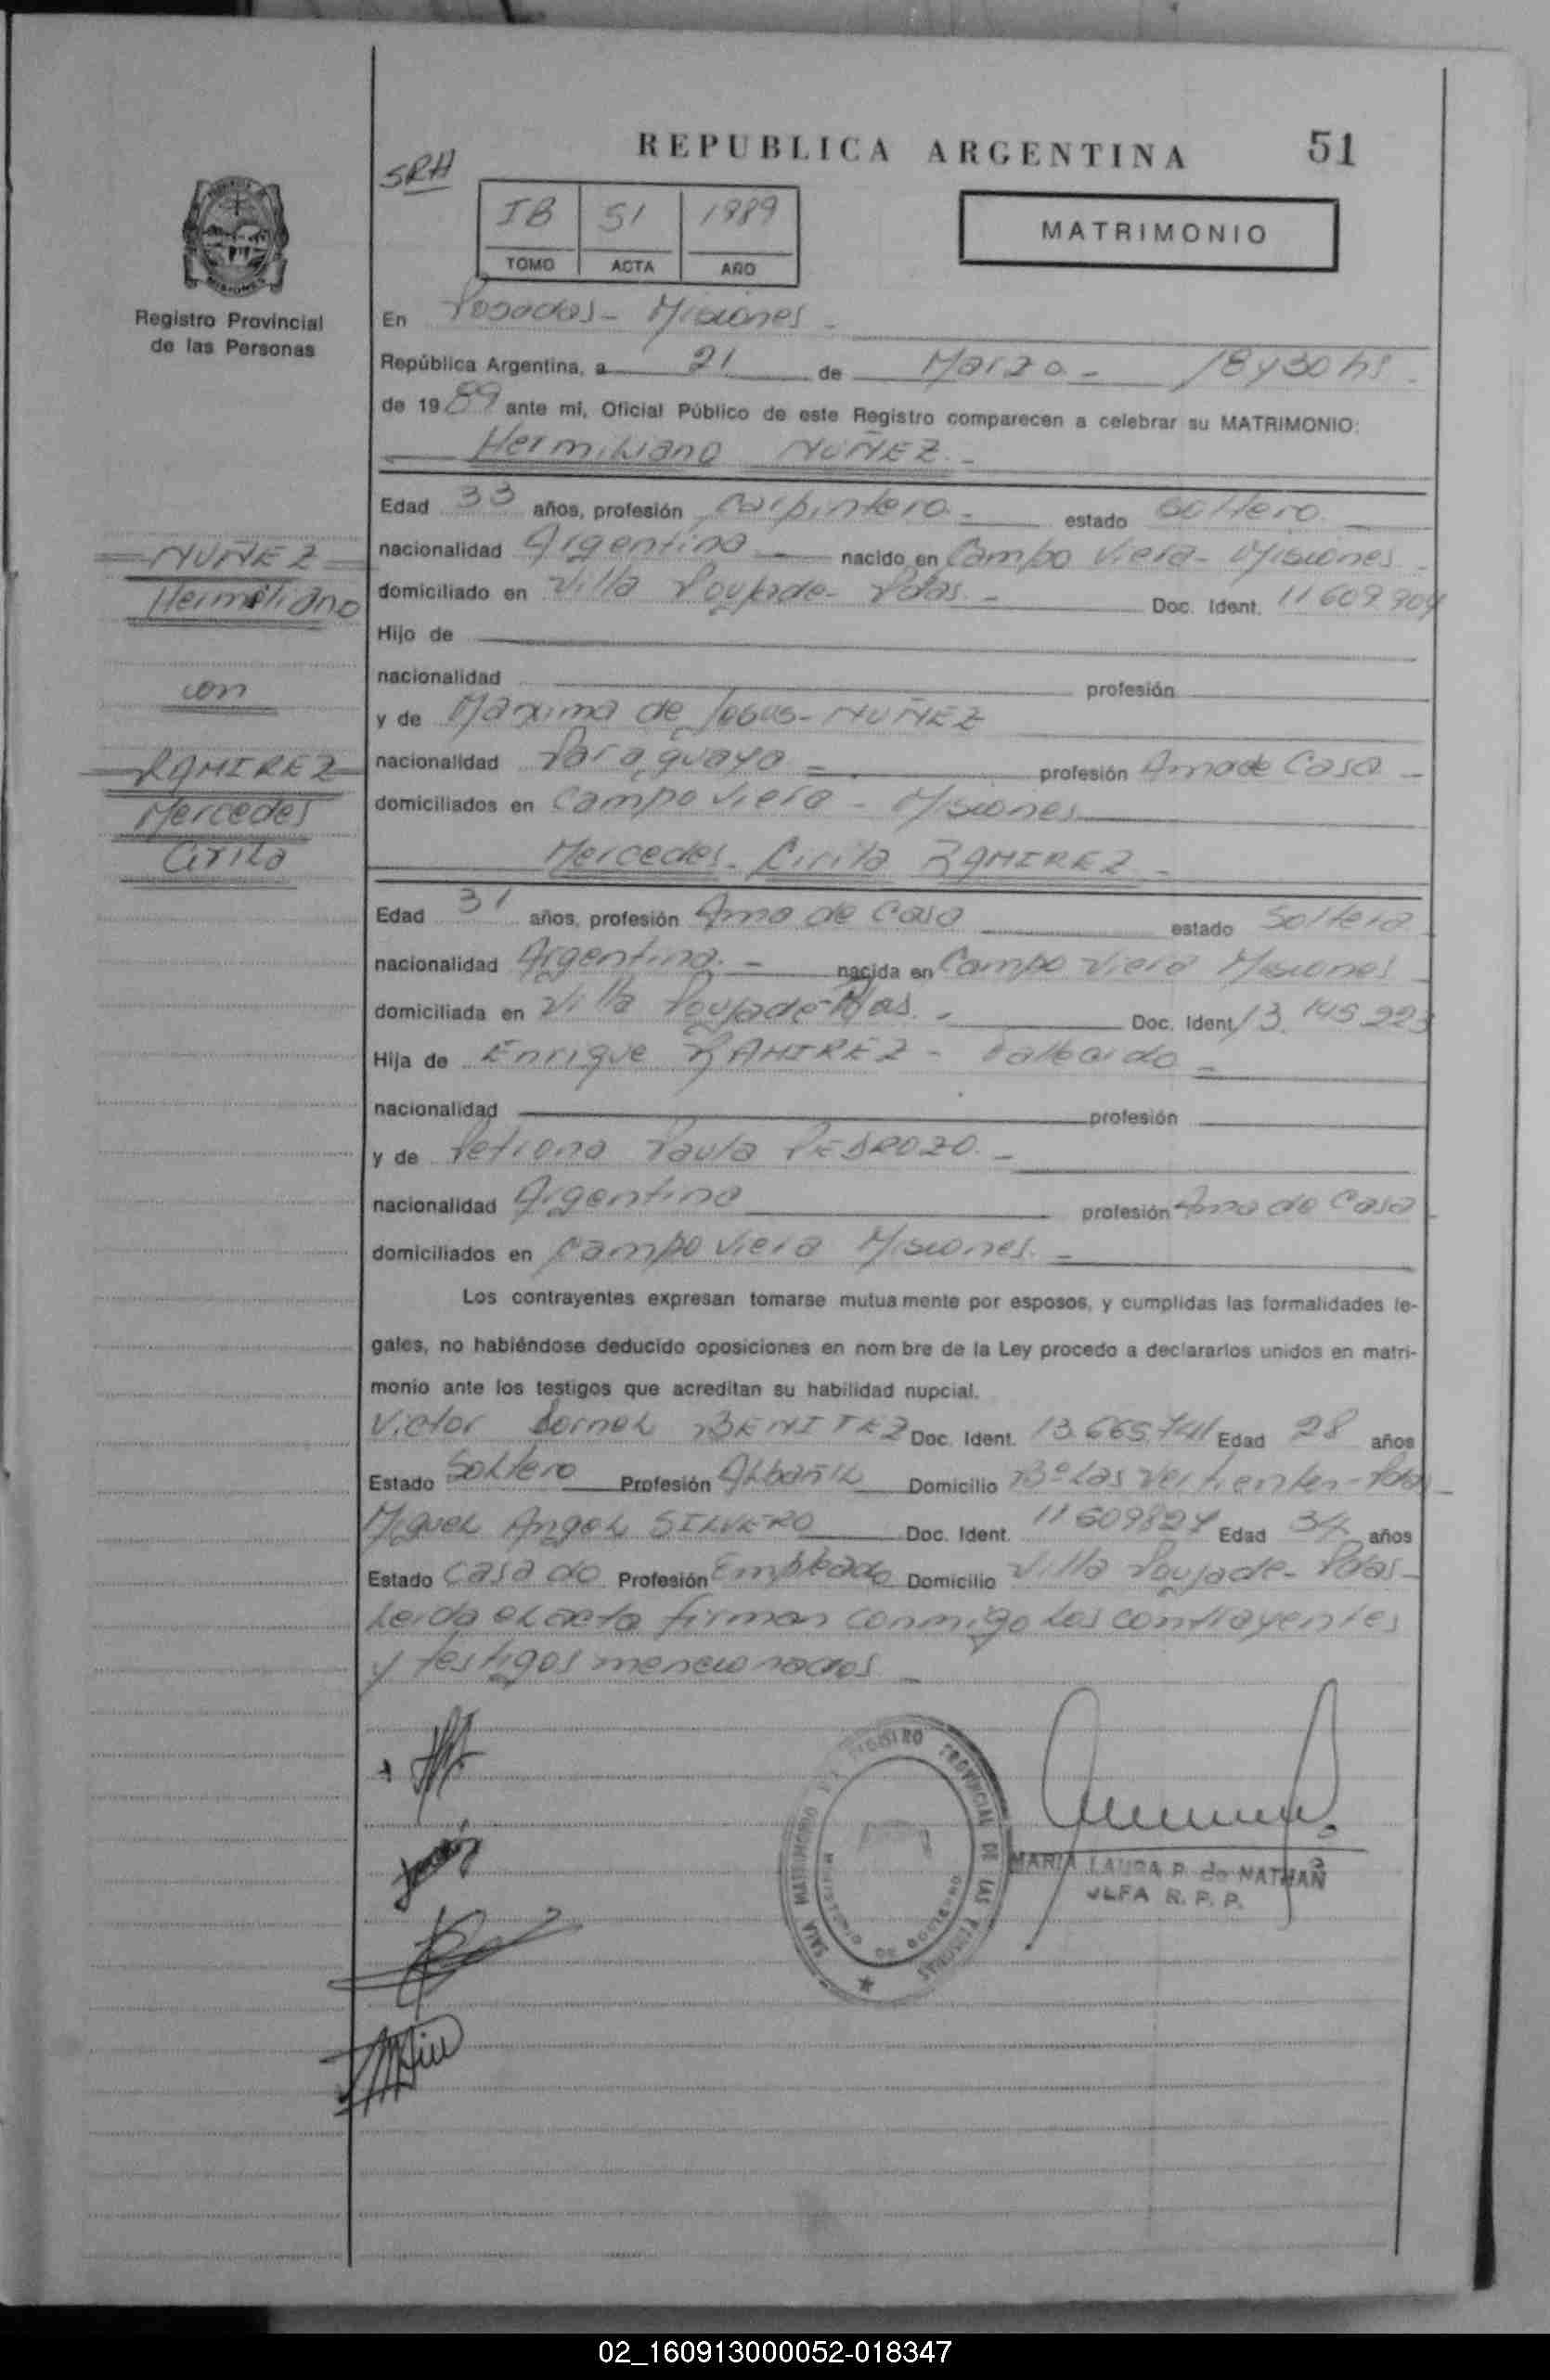 REPUBLICA ARGENTINA 51
SRH
IB 51 1989
TOMO ACTA AÑO
MATRIMONIO
Registro Provincial
de las Personas
En Posadas - Misiones -
República Argentina, a 21 de Marzo - 18 y 30 hs -
de 1989 ante mí, Oficial Público de este Registro comparecen a celebrar su MATRIMONIO:
Hermiliano NUÑEZ -
Edad 33 años, profesión Carpintero - estado Soltero
nacionalidad Argentina - nacido en Campo Viera - Misiones -
domiciliado en Villa Poujade - Pdas - Doc. Ident. 11 609 904
Hijo de
nacionalidad profesión
y de Maxima de Jesus - NUÑEZ
nacionalidad Paraguaya - profesión Ama de Casa -
domiciliados en Campo Viera - Misiones
NUÑEZ
Hermiliano
con
RAMIREZ
Mercedes
Cirila
Mercedes - Cirila RAMIREZ -
Edad 31 años, profesión Ama de Casa estado Soltera
nacionalidad Argentina - nacida en Campo Viera Misiones
domiciliada en Villa Poujade - Pdas - Doc. Ident. 13. 145 223
Hija de Enrique RAMIREZ - Fallecido -
nacionalidad profesión
y de Petrona Paula PEDROZO -
nacionalidad Argentina profesión Ama de Casa
domiciliados en Campo Viera Misiones -
Los contrayentes expresan tomarse mutua mente por esposos, y cumplidas las formalidades le-
gales, no habiéndose deducido oposiciones en nom bre de la Ley procedo a declararlos unidos en matri-
monio ante los testigos que acreditan su habilidad nupcial.
Victor BENITEZ Doc. Ident. 13.665.741 Edad 28 años
Estado Soltero Profesión Albañil Domicilio Bº Las Vertientes - Pdas
Miguel Angel SILVERO Doc. Ident. 11 609827 Edad 34 años
Estado Casado Profesión Empleado Domicilio Villa Poujade - Pdas -
Leida el acta firman conmigo los contrayentes
y testigos mencionados -
SALA MATRIMONIO REGISTRO PROVINCIAL DE LAS PERSONAS
MINISTERIO DE GOBIERNO
MARIA LAURA P. de NATHAN
JEFA R. P. P.
02_160913000052-018347